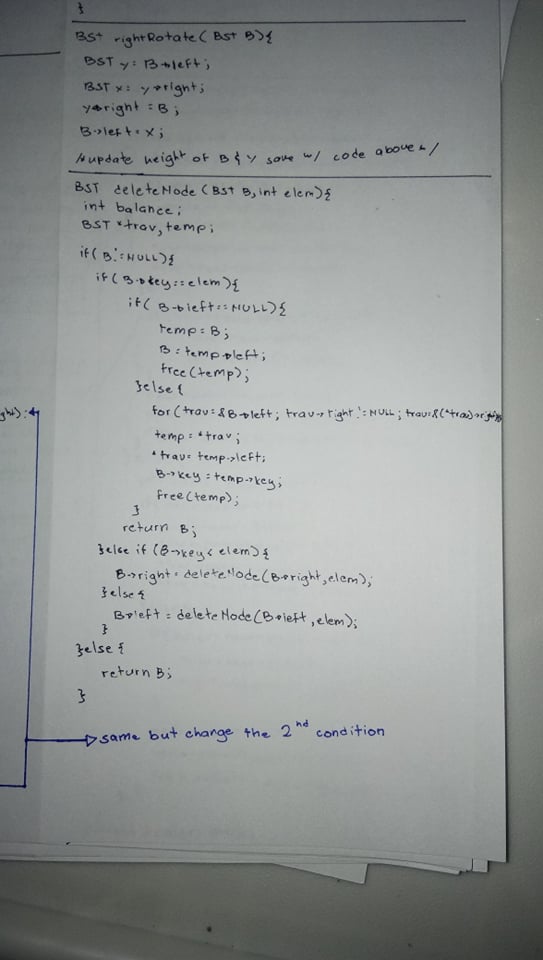 }
BST rightRotate( BST B){
BST y = B->left;
BST x = y->right;
y->right = B;
B->left = x;
/*update height of B & y same w/ code above */
BST deleteNode (BST B, int elem){
int balance;
BST *trav, temp;
if( B != NULL){
if( B->key == elem){
if( B->left == NULL){
temp = B;
B = temp->left;
free(temp);
}else{
for( trav = &B->left; trav->right != NULL; trav = &(*trav)->right
temp = *trav;
*trav = temp->left;
B->key = temp->key;
free(temp);
}
return B;
}else if (B->key < elem){
B->right = deleteNode(B->right, elem);
}else{
B->left = deleteNode(B->left, elem);
}
}else{
return B;
}
same but change the 2nd condition